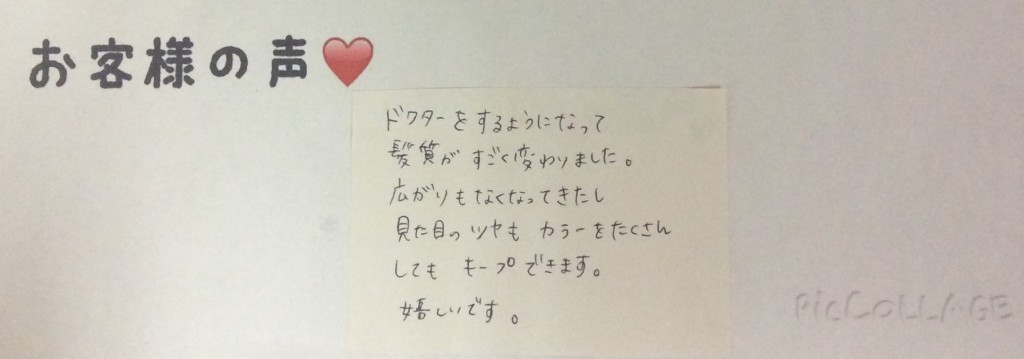 お客様の声❤️
ドクターをするようになって
髪質が すごく変わりました。
広がりもなくなってきたし
見た目のツヤも カラーをたくさん
しても キープできます。
嬉しいです。
PicCOLLAGE